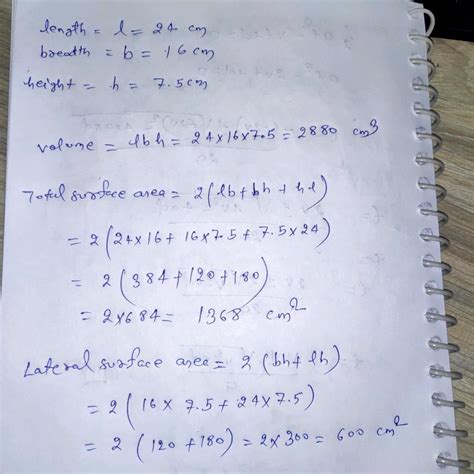 length = l = 24 cm
breadth = b = 16 cm
height = h = 7.5 cm
volume = lbh = 24×16×7.5 = 2880 cm³
Total surface area = 2(lb + bh + hl)
= 2(24×16 + 16×7.5 + 7.5×24)
= 2(384+120+180)
= 2×684 = 1368 cm²
Lateral surface area = 2(bh+lh)
= 2(16 × 7.5 + 24 × 7.5)
= 2 (120 + 180) = 2×300 = 600 cm²